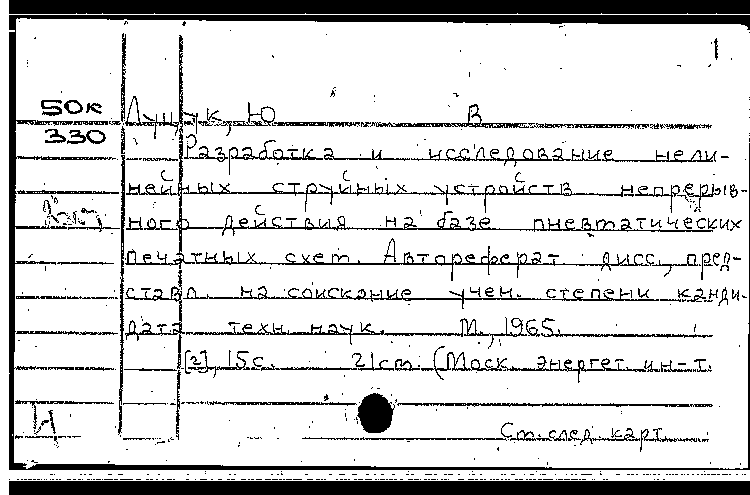 1
50к Лущук, Ю В
330 Разработка и исследование нели-
нейных струйных устройств непрерыв-
ного действия на базе пневматических
печатных схем. Автореферат дисс., пред-
ставл. на соискание учен. степени канди-
дата техн. наук. М., 1965.
[2], 15с. 21см. (Моск. энергет. ин-т.
Ст. след. карт.